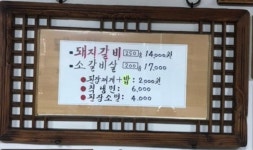 돼지갈비 250g 14,000원
소갈비살 200g 17,000
된장찌개+밥: 2,000원
칡냉면: 6,000
된장소면: 4,000